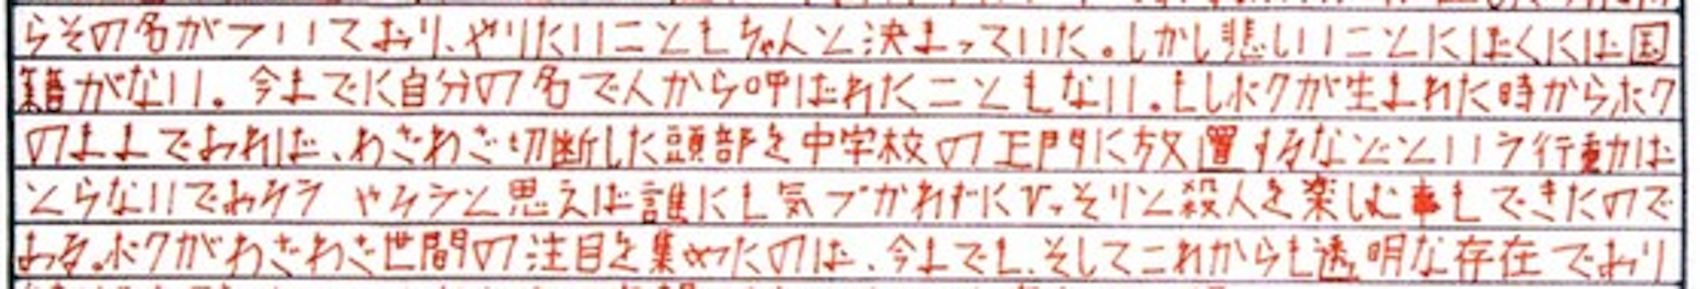 らその名がついており、やりたいこともちゃんと決まっていた。しかし悲しいことにぼくには国
籍がない。今までに自分の名で人から呼ばれたこともない。もしボクが生まれた時からボク
のままであれば、わざわざ切断した頭部を中学校の正門に放置するなどという行動は
とらないであろう やろうと思えば誰にも気づかれずにひっそりと殺人を楽しむ事もできたので
ある。ボクがわざわざ世間の注目を集めたのは、今までも、そしてこれからも透明な存在であり